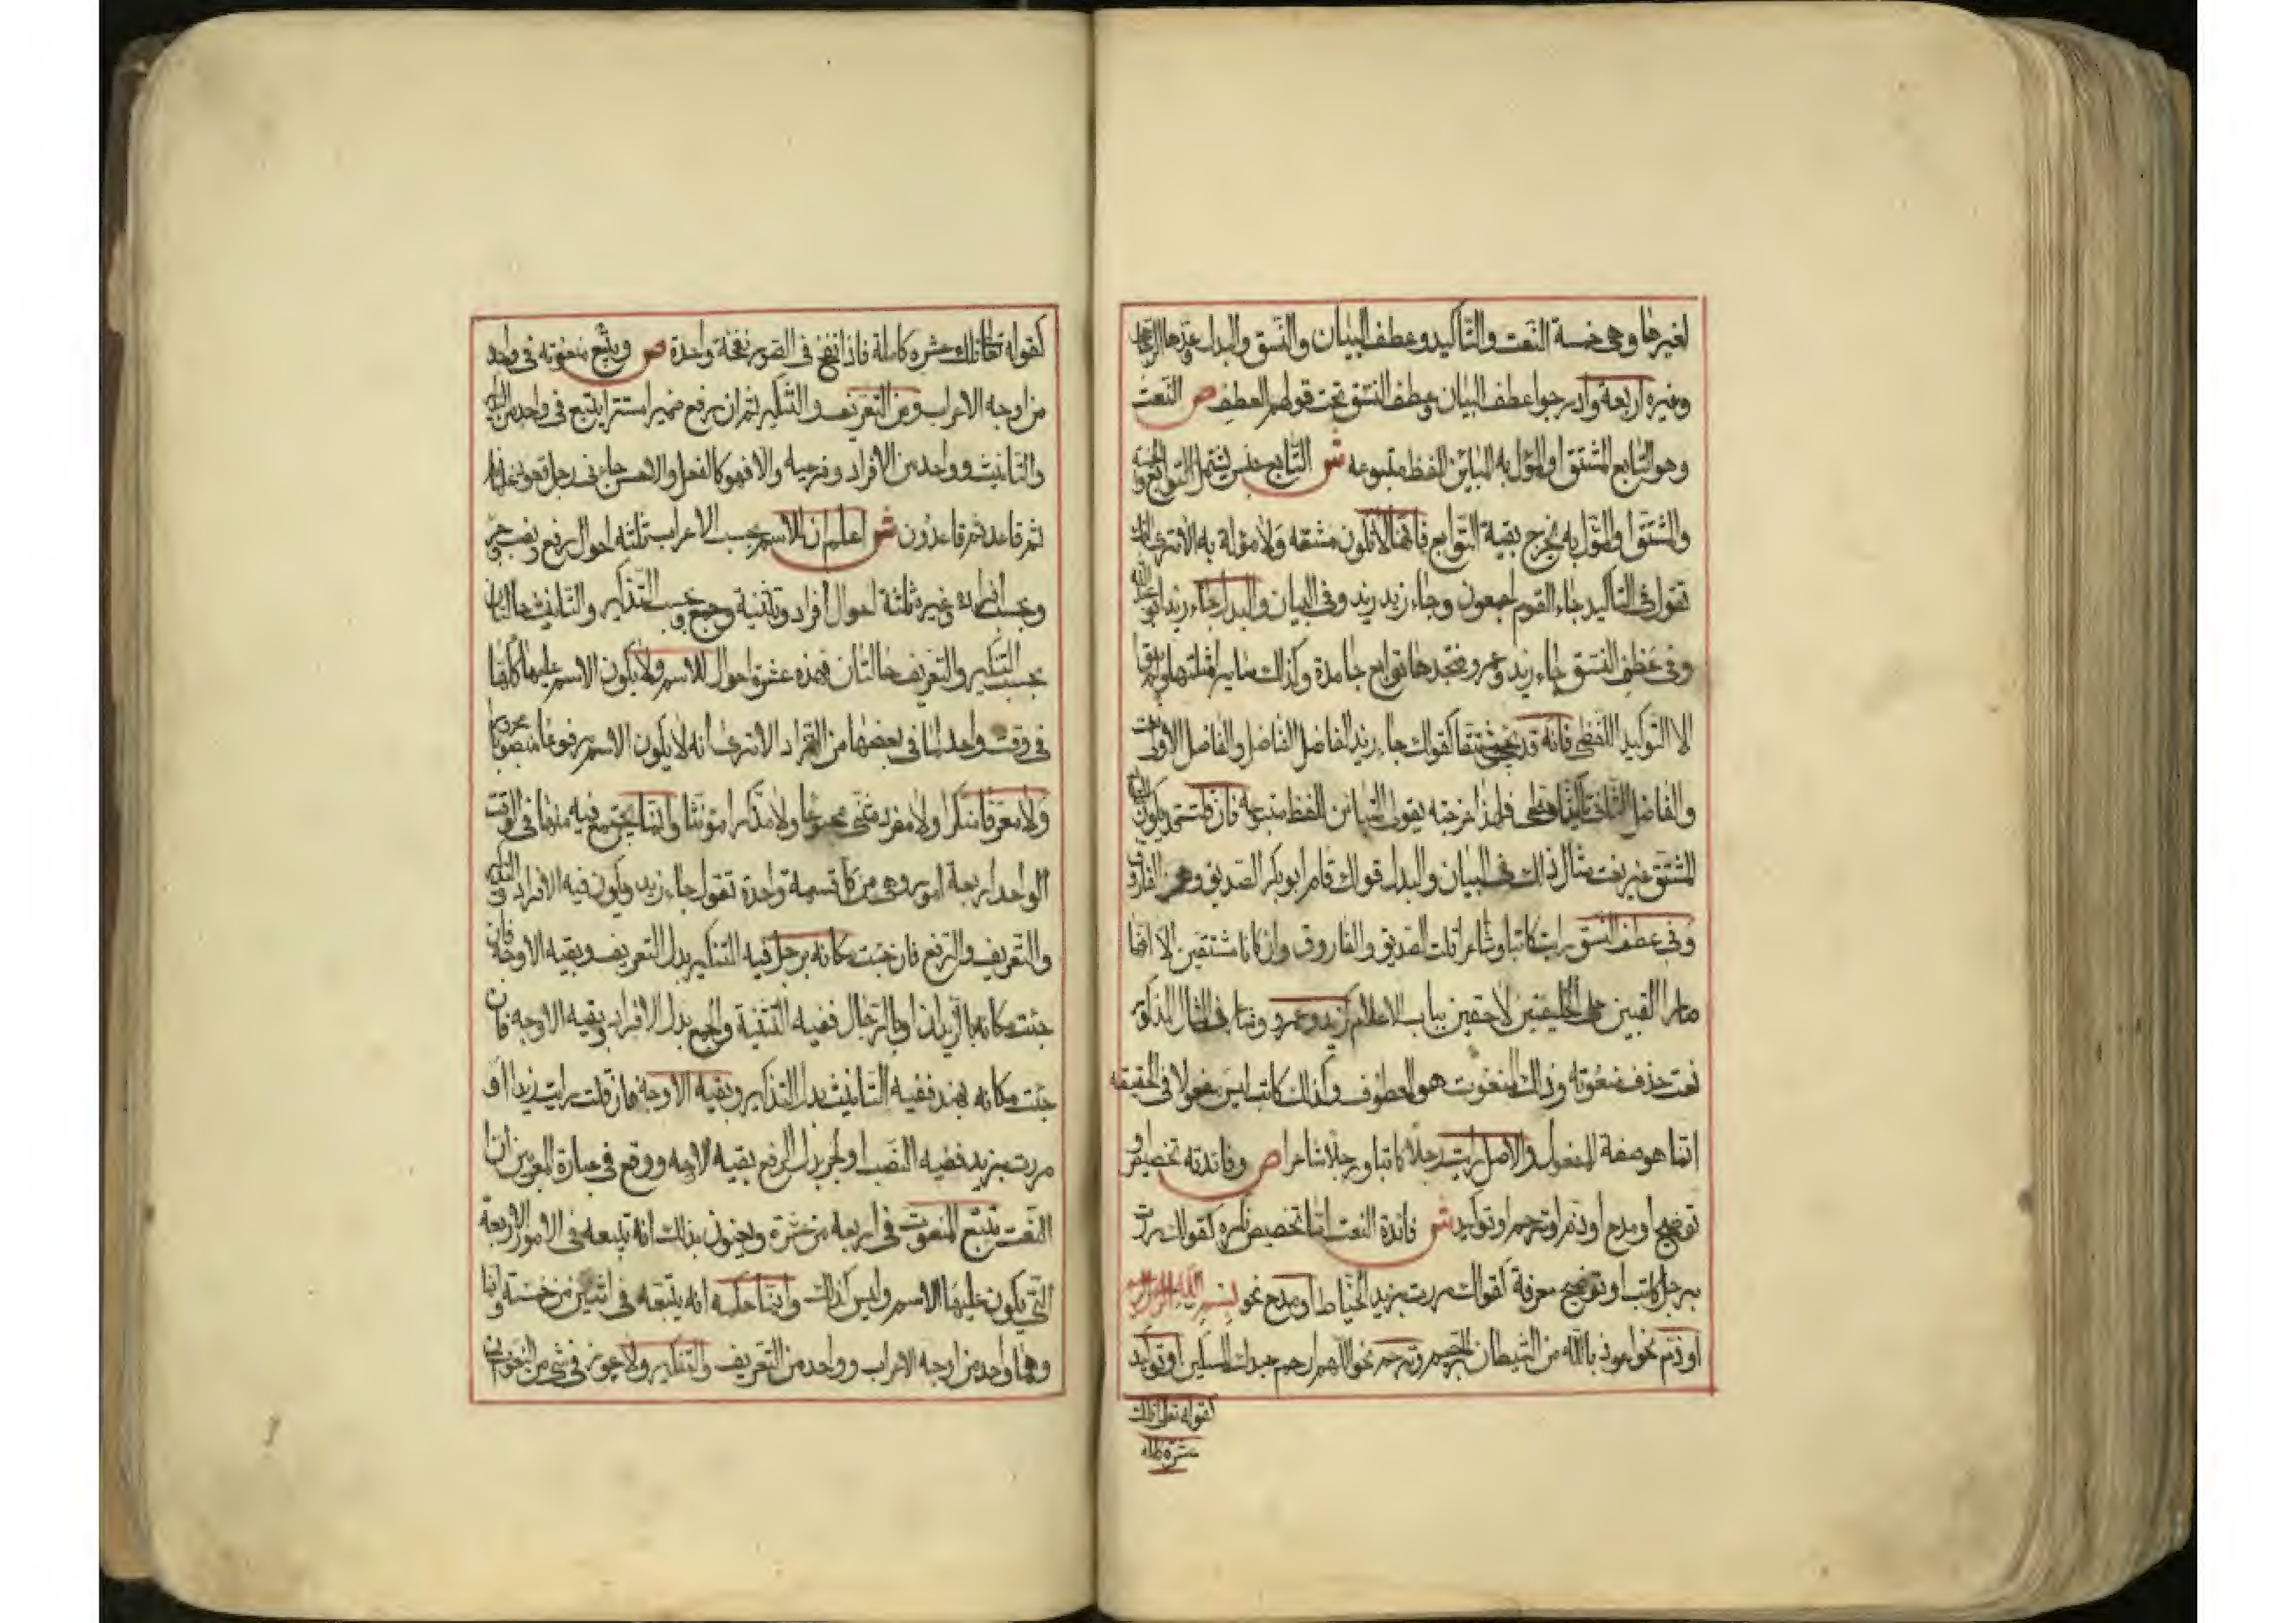 لغيرها وهى خمسة النعت والتأكيد وعطف البيان والنسق والبدل وعدها الزجاجى
وغيره اربعة وادرجوا عطف البيان وعطف النسق تحت قولهم العطف ص النعت
وهو التابع المشتق او المؤل به المباين للفظ متبوعه ش التابع جنس يشمل التوابع الخمسة
والمشتق او المؤل به يخرج بقية التوابع فانها لا تكون مشتقه ولا مؤلة به الا ترى انك
تقول فى التأكيد جاء القوم اجمعون وجاء زيد زيد وفى البيان والبدل جاء زيد ابو عبد الله
وفى عطف النسق جاء زيد وعمرو فتجدها توابع جامدة وكذلك ساير امثلتها ولم يبق
الا التوكيد اللفظى فانه قد يجئ مشتقا كقولك جاء زيد الفاضل الفاضل والفاضل الاول نعت
والفاضل الثانى تأكيد لفظى فلهذا اخرجته بقولى المباين للفظ متبوعه فان قلت قد يكون التابع
المشتق غير نعت مثال ذلك فى البيان والبدل قولك قام ابو بكر الصديق وعمر الفاروق
وفى عطف النسق رايت كاتبا وشاعرا قلت الصديق والفاروق وان كانا مشتقين الا انهما
صارا لقبين على الخليفتين لاحقين بباب الاعلام كزيد وعمرو وشاعرا فى المثال المذكور
نعت حذف منعوته وذلك المنعوت هو المعطوف وكذلك كاتبا ليس مفعولا فى الحقيقه
انما هو صفة للمفعول والاصل رايت رجلا كاتبا ورجلا شاعرا ص وفائدته تخصيص او
توضيح او مدح او ذم او ترحم او توكيد ش فائدة النعت اما تخصيص نكره كقولك مررت
برجل كاتب او توضيح معرفة كقولك مررت بزيد الخياط او مدح نحو بسم الله الرحمن الرحيم
او ذم نحو اعوذ بالله من الشيطان الرجيم او ترحم نحو اللهم ارحم عبدك المسكين او توكيد
كقوله تعالى تلك
عشرة كامله
كقوله تعالى تلك عشره كاملة فاذا نفخ فى الصور نفخة واحدة ص ويتبع منعوته فى واحد
من اوجه الاعراب ومن التعريف والتنكير ثم ان رفع ضميرا مستترا يتبع فى واحد من التذكير
والتانيث وواحد من الافراد وفرعيه والا فهو كالفعل والاحسن جاءنى رجل قعود غلمانه
ثم قاعد ثم قاعدون ش اعلم ان للاسم بحسب الاعراب ثلثه احوال رفع ونصب وجر
وبحسب افراده وغيره ثلثة احوال افراد وتثنية وجمع وبحسب التذكير والتانيث حالتان
بحسب التنكير والتعريف حالتان فهذه عشرة احوال للاسم ولا يكون الاسم عليها كلها
فى وقت واحد لما فى بعضها من التضاد الا ترى انه لا يكون الاسم مرفوعا منصوبا مجرورا
ولا معرفا منكرا ولا مفردا مثنى مجموعا ولا مذكرا مؤنثا وانما يجتمع فيه منها فى الوقت
الواحد اربعة امور وهى من كل قسمة واحدة تقول جاء زيد فيكون فيه الافراد والتذكير
والتعريف والرفع فان جئت مكانه برجل فيه التنكير بدل التعريف وبقيه الاوجه فان
جئت مكانه بالزيدان او بالرجال ففيه التثنية والجمع بدل الافراد وبقيه الاوجه فان
جئت مكانه بهند ففيه التانيث بدل التذكير وبقية الاوجه فان قلت رايت زيدا او
مررت بزيد ففيه النصب او الجر بدل الرفع وبقيه الاوجه ووقع فى عبارة المعربين ان
النعت يتبع المنعوت فى اربعه من عشرة ويعنون بذلك انه يتبعه فى الامور الاربعة
التى يكون عليها الاسم وليس كذلك وانما حكمه انه يتبعه فى اثنين من خمسة دائما
وهما واحد من اوجه الاعراب وواحد من التعريف والتنكير ولا يجوز فى شئ من النعوت ان